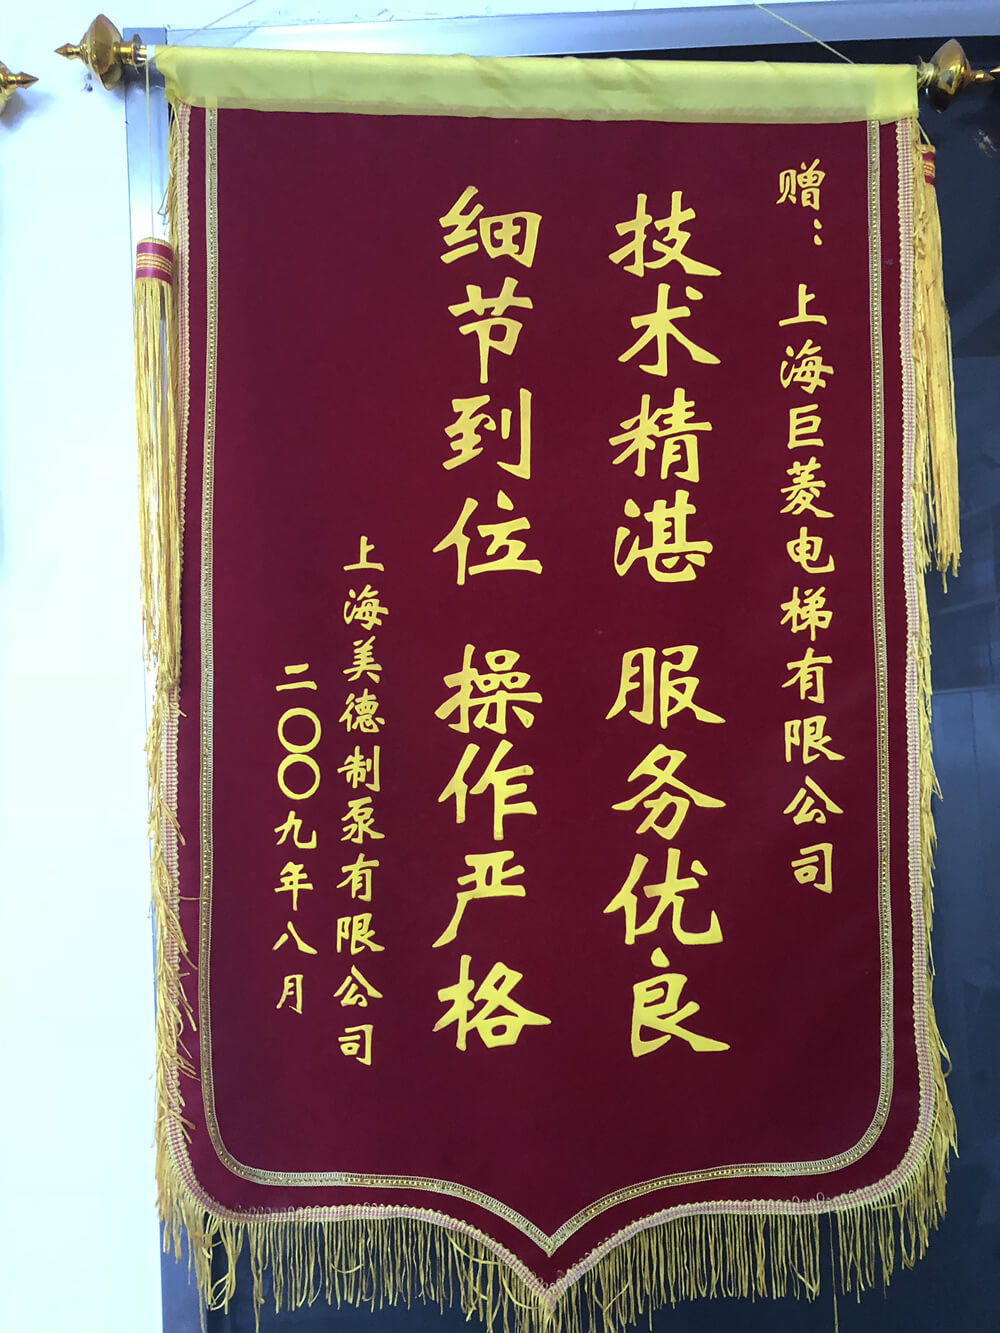 赠：上海巨菱电梯有限公司
技术精湛 服务优良
细节到位 操作严格
上海美德制泵有限公司
二〇〇九年八月